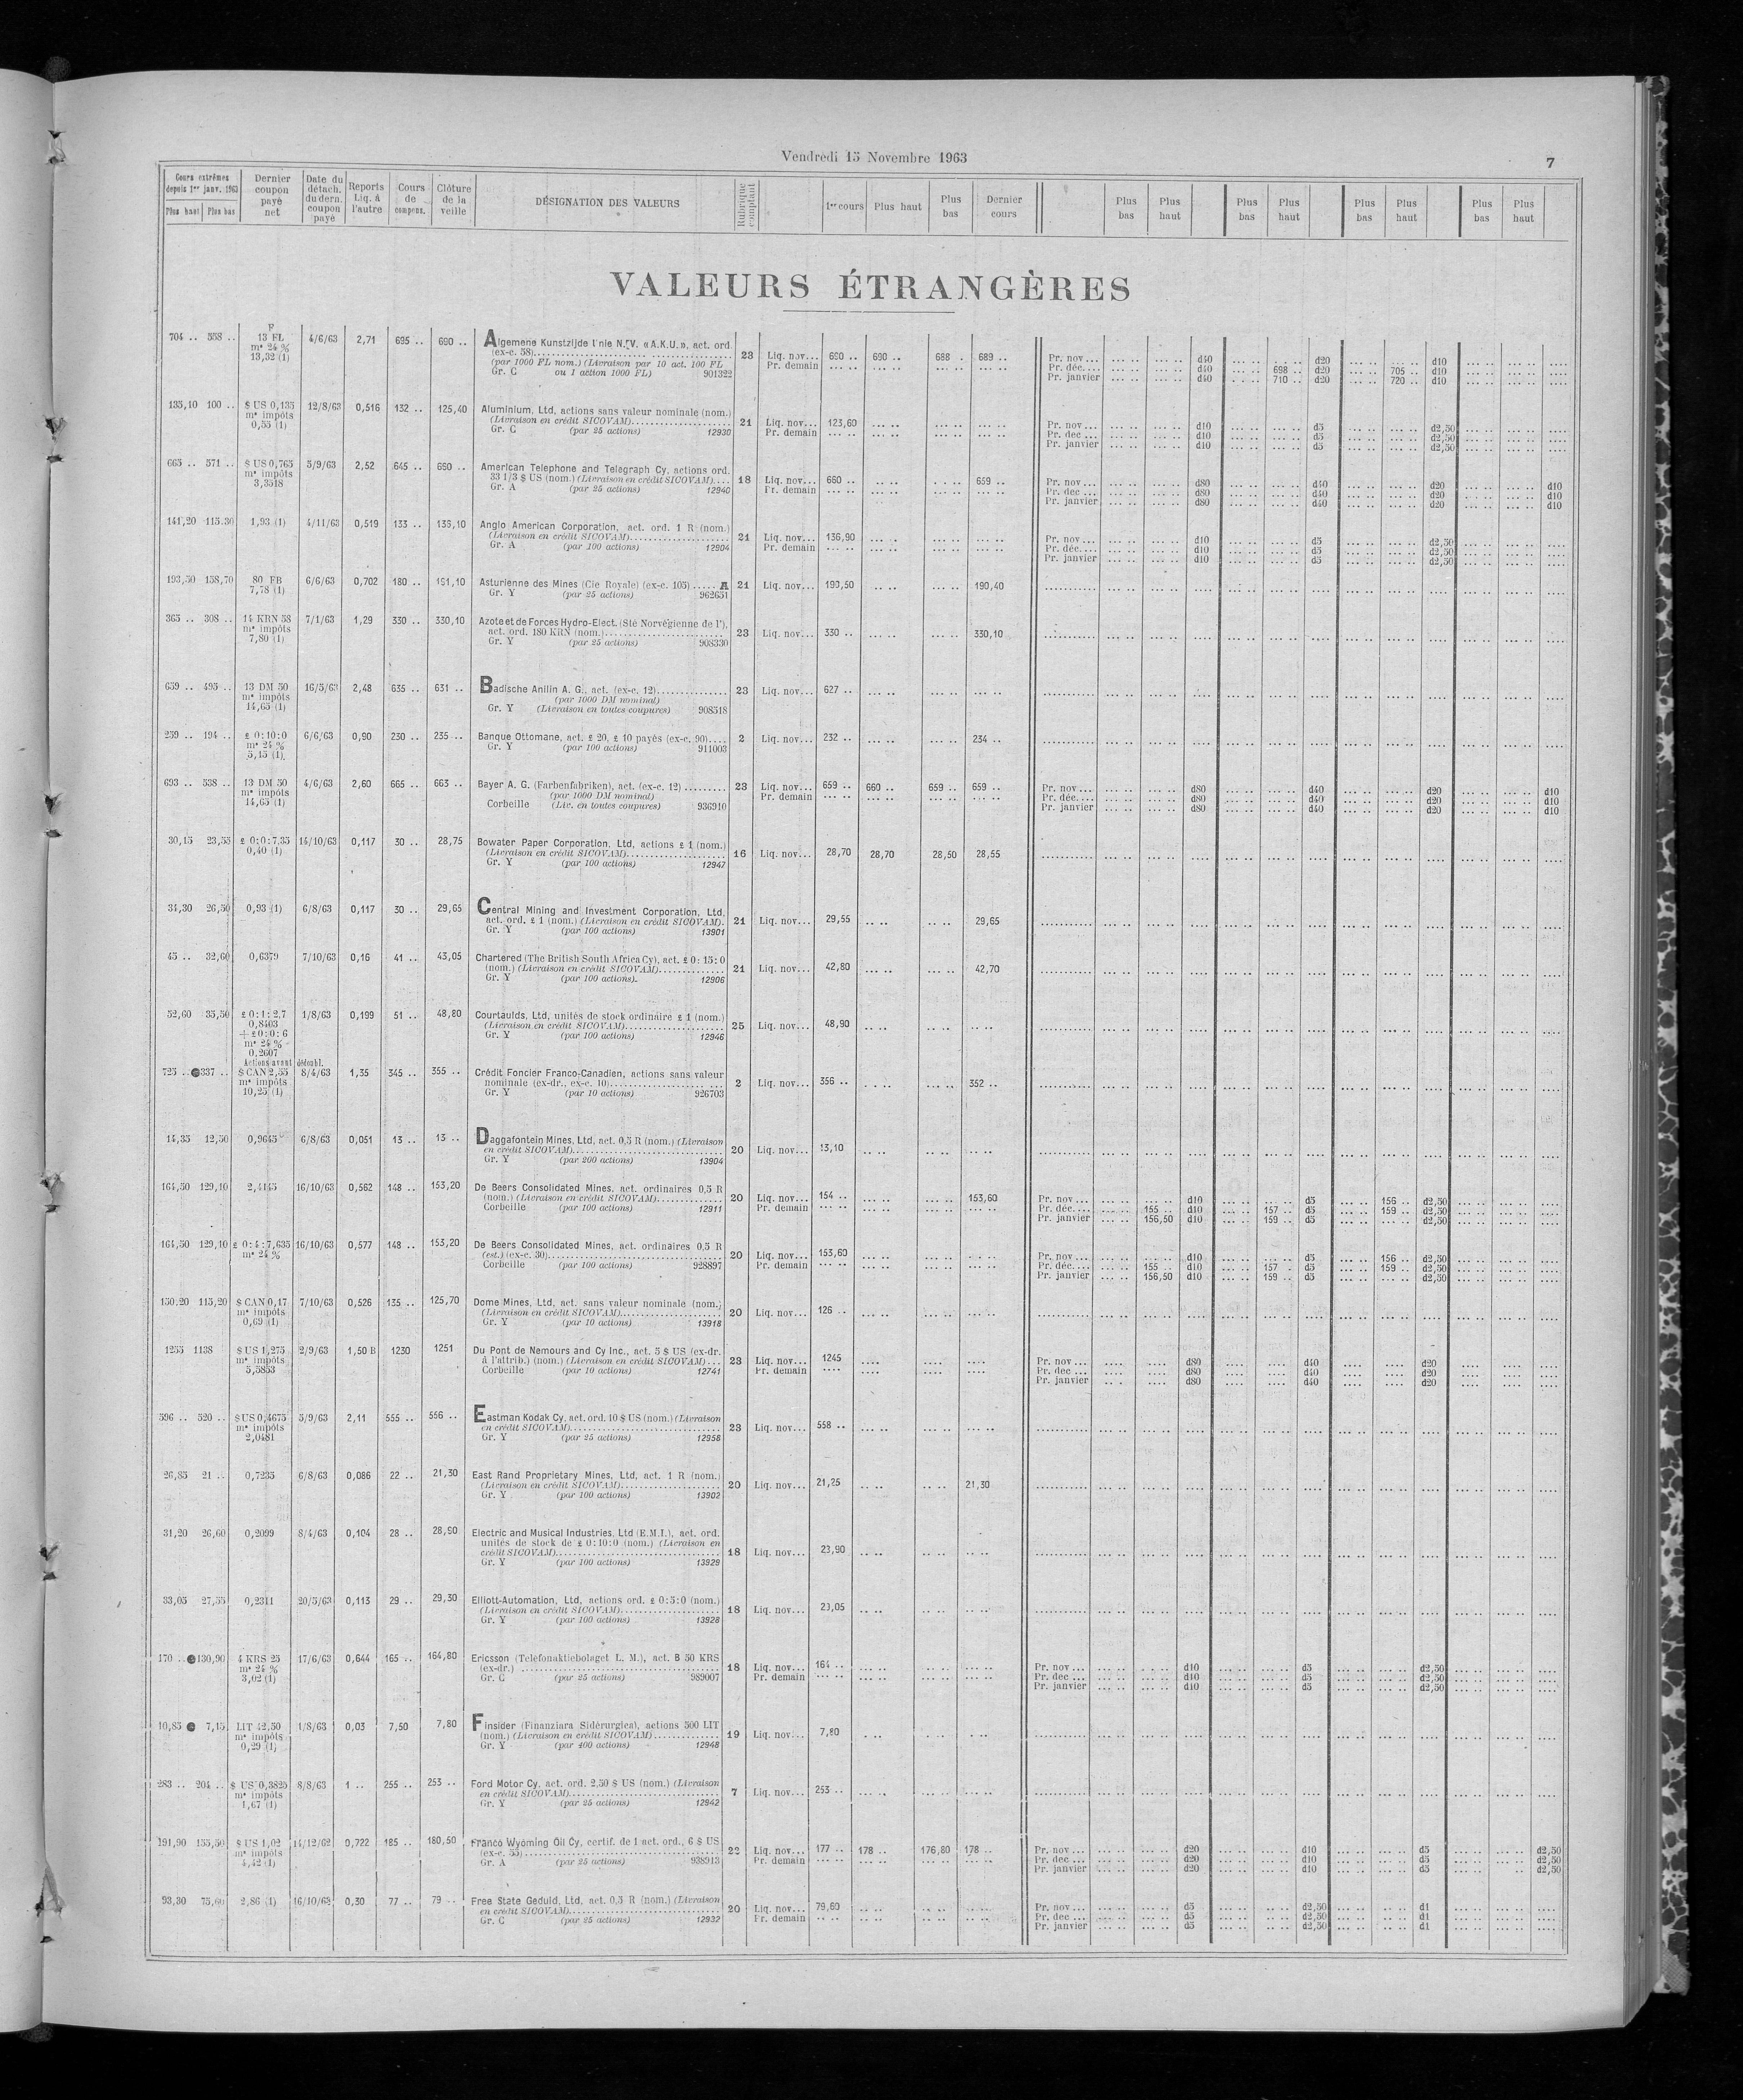 Vendredi 15 Novembre 1963
7
Cours extrêmes depuis 1er janv. 1963 Plus haut Plus bas | Dernier coupon payé net | Date du détach. du dern. coupon payé | Reports Liq. à l'autre | Cours de compens. | Clôture de la veille | DÉSIGNATION DES VALEURS | Rubrique comptant | 1er cours | Plus haut | Plus bas | Dernier cours | Plus bas | Plus haut | Plus bas | Plus haut | Plus bas | Plus haut | Plus bas | Plus haut
VALEURS ÉTRANGÈRES
F
704 .. 558 .. 13 FL 4/6/63 2,71 695 .. 690 .. Algemene Kunstzijde Unie N.V. «A.K.U.», act. ord.
me 24 % (ex-c. 58) 23 Liq. nov... 690 .. 690 .. 688 . 689 .. Pr. nov ... d40 d20 d10
13,32 (1) (par 1000 FL nom.) (Livraison par 10 act. 100 FL Pr. demain Pr. déc.... d40 698 .. d20 705 .. d10
Gr. C ou 1 action 1000 FL) 901322 Pr. janvier d40 710 .. d20 720 .. d10
135,10 100 .. $ US 0,135 12/8/63 0,516 132 .. 125,40 Aluminium, Ltd, actions sans valeur nominale (nom.)
me impôts (Livraison en crédit SICOVAM) 21 Liq. nov... 123,60 Pr. nov ... d10 d5 d2,50
0,55 (1) Gr. C (par 25 actions) 12930 Pr. demain Pr. dec ... d10 d5 d2,50
Pr. janvier d10 d5 d2,50
665 .. 571 .. $ US 0,765 5/9/63 2,52 645 .. 660 .. American Telephone and Telegraph Cy, actions ord.
me impôts 33 1/3 $ US (nom.) (Livraison en crédit SICOVAM).... 18 Liq. nov... 660 .. 659 .. Pr. nov ... d80 d40 d20 d10
3,3518 Gr. A (par 25 actions) 12940 Pr. demain Pr. dec ... d80 d40 d20 d10
Pr. janvier d80 d40 d20 d10
141,20 115,30 1,93 (1) 4/11/63 0,519 133 .. 136,10 Anglo American Corporation, act. ord. 1 R (nom.)
(Livraison en crédit SICOVAM) 21 Liq. nov... 136,90 Pr. nov ... d10 d5 d2,50
Gr. A (par 100 actions) 12904 Pr. demain Pr. déc.... d10 d5 d2,50
Pr. janvier d10 d5 d2,50
193,50 158,70 80 FB 6/6/63 0,702 180 .. 191,10 Asturienne des Mines (Cie Royale) (ex-c. 105) ..... A 21 Liq. nov... 190,50 190,40
7,78 (1) Gr. Y (par 25 actions) 962651
365 .. 308 .. 14 KRN 58 7/1/63 1,29 330 .. 330,10 Azote et de Forces Hydro-Elect. (Sté Norvégienne de l'),
me impôts act. ord. 180 KRN (nom.) 23 Liq. nov... 330 .. 330,10
7,80 (1) Gr. Y (par 25 actions) 908330
659 .. 495 .. 13 DM 50 16/5/63 2,48 635 .. 631 .. Badische Anilin A. G., act. (ex-c. 12) 23 Liq. nov... 627 ..
me impôts (par 1000 DM nominal)
14,65 (1) Gr. Y (Livraison en toutes coupures) 908518
259 .. 194 .. £ 0:10:0 6/6/63 0,90 230 .. 235 .. Banque Ottomane, act. £ 20, £ 10 payés (ex-c. 90).... 2 Liq. nov... 232 .. 234 ..
me 24 % Gr. Y (par 100 actions) 911003
5,15 (1)
693 .. 538 .. 13 DM 50 4/6/63 2,60 665 .. 663 .. Bayer A. G. (Farbenfabriken), act. (ex-c. 12) ......... 23 Liq. nov... 659 .. 660 .. 659 .. 659 .. Pr. nov ... d80 d40 d20 d10
me impôts (par 1000 DM nominal) Pr. demain Pr. déc.... d80 d40 d20 d10
14,65 (1) Corbeille (Liv. en toutes coupures) 936910 Pr. janvier d80 d40 d20 d10
30,15 23,55 £ 0:0:7,35 14/10/63 0,117 30 .. 28,75 Bowater Paper Corporation, Ltd, actions £ 1 (nom.)
0,40 (1) (Livraison en crédit SICOVAM) 16 Liq. nov... 28,70 28,70 28,50 28,55
Gr. Y (par 100 actions) 12947
34,30 26,50 0,93 (1) 6/8/63 0,117 30 .. 29,65 Central Mining and Investment Corporation, Ltd,
act. ord. £ 1 (nom.) (Livraison en crédit SICOVAM). 21 Liq. nov... 29,55 29,65
Gr. Y (par 100 actions) 13901
45 .. 32,60 0,6379 7/10/63 0,16 41 .. 43,05 Chartered (The British South Africa Cy), act. £ 0:15:0
(nom.) (Livraison en crédit SICOVAM) 21 Liq. nov... 42,80 42,70
Gr. Y (par 100 actions) 12906
52,60 35,50 £ 0:1:2,7 1/8/63 0,199 51 .. 48,80 Courtaulds, Ltd, unités de stock ordinaire £ 1 (nom.)
0,8403 (Livraison en crédit SICOVAM) 25 Liq. nov... 48,90
+ £ 0:0:6 Gr. Y (par 100 actions) 12946
me 24 %
0,2607
Actions avant dédoubl.
725 .. 337 .. $ CAN 2,55 8/4/63 1,35 345 .. 355 .. Crédit Foncier Franco-Canadien, actions sans valeur
me impôts nominale (ex-dr., ex-c. 10) 2 Liq. nov... 356 .. 352 ..
10,25 (1) Gr. Y (par 10 actions) 926703
14,35 12,50 0,9645 6/8/63 0,051 13 .. 13 .. Daggafontein Mines, Ltd, act. 0,5 R (nom.) (Livraison
en crédit SICOVAM) 20 Liq. nov... 13,10
Gr. Y (par 200 actions) 13904
164,50 129,10 2,4145 16/10/63 0,562 148 .. 153,20 De Beers Consolidated Mines, act. ordinaires 0,5 R
(nom.) (Livraison en crédit SICOVAM) 20 Liq. nov... 154 .. 153,60 Pr. nov ... d10 d5 156 .. d2,50
Corbeille (par 100 actions) 12911 Pr. demain Pr. déc.... 155 .. d10 157 .. d5 159 .. d2,50
Pr. janvier 156,50 d10 159 .. d5 d2,50
164,50 129,10 £ 0:4:7,635 16/10/63 0,577 148 .. 153,20 De Beers Consolidated Mines, act. ordinaires 0,5 R
me 24 % (est.) (ex-c. 30) 20 Liq. nov... 153,60 Pr. nov ... d10 d5 156 .. d2,50
Corbeille (par 100 actions) 928897 Pr. demain Pr. déc.... 155 .. d10 157 . d5 159 .. d2,50
Pr. janvier 156,50 d10 159 .. d5 d2,50
150,20 115,20 $ CAN 0,17 7/10/63 0,526 135 .. 125,70 Dome Mines, Ltd, act. sans valeur nominale (nom.)
me impôts (Livraison en crédit SICOVAM) 20 Liq. nov... 126 ..
0,69 (1) Gr. Y (par 10 actions) 13918
1255 1138 $ US 1,275 2/9/63 1,50 B 1230 1251 Du Pont de Nemours and Cy Inc., act. 5 $ US (ex-dr.
me impôts à l'attrib.) (nom.) (Livraison en crédit SICOVAM) ... 23 Liq. nov... 1245 Pr. nov ... d80 d40 d20
5,5853 Corbeille (par 10 actions) 12741 Pr. demain Pr. dec ... d80 d40 d20
Pr. janvier d80 d40 d20
596 .. 520 .. $ US 0,4675 5/9/63 2,11 555 .. 556 .. Eastman Kodak Cy, act. ord. 10 $ US (nom.) (Livraison
me impôts en crédit SICOVAM) 23 Liq. nov... 558 ..
2,0481 Gr. Y (par 25 actions) 12958
26,85 21 .. 0,7235 6/8/63 0,086 22 .. 21,30 East Rand Proprietary Mines, Ltd, act. 1 R (nom.)
(Livraison en crédit SICOVAM) 20 Liq. nov... 21,25 21,30
Gr. Y (par 100 actions) 13902
31,20 26,60 0,2099 8/4/63 0,104 28 .. 28,90 Electric and Musical Industries, Ltd (E.M.I.), act. ord.
unités de stock de £ 0:10:0 (nom.) (Livraison en
crédit SICOVAM) 18 Liq. nov... 23,90
Gr. Y (par 100 actions) 13929
33,05 27,55 0,2311 20/5/63 0,113 29 .. 29,30 Elliott-Automation, Ltd, actions ord. £ 0:5:0 (nom.)
(Livraison en crédit SICOVAM) 18 Liq. nov... 29,05
Gr. Y (par 100 actions) 13928
170 .. 130,90 4 KRS 25 17/6/63 0,644 165 .. 164,80 Ericsson (Telefonaktiebolaget L. M.), act. B 50 KRS
me 24 % (ex-dr.) 18 Liq. nov... 164 .. Pr. nov ... d10 d5 d2,50
3,02 (1) Gr. C (par 25 actions) 989007 Pr. demain Pr. dec ... d10 d5 d2,50
Pr. janvier d10 d5 d2,50
10,85 7,15 LIT 42,50 1/8/63 0,03 7,50 7,80 Finsider (Finanziara Sidérurgica), actions 500 LIT
me impôts (nom.) (Livraison en crédit SICOVAM) 19 Liq. nov... 7,80
0,29 (1) Gr. Y (par 400 actions) 12948
283 .. 204 .. $ US 0,3825 8/8/63 1 .. 255 .. 253 .. Ford Motor Cy, act. ord. 2,50 $ US (nom.) (Livraison
me impôts en crédit SICOVAM) 7 Liq. nov... 253 ..
1,67 (1) Gr. Y (par 25 actions) 12942
191,90 155,50 $ US 1,02 14/12/62 0,722 185 .. 180,50 Franco Wyoming Oil Cy, certif. de 1 act. ord., 6 $ US
me impôts (ex-c. 55) 22 Liq. nov... 177 .. 178 .. 176,80 178 .. Pr. nov ... d20 d10 d5 d2,50
4,42 (1) Gr. A (par 25 actions) 938913 Pr. demain Pr. dec ... d20 d10 d5 d2,50
Pr. janvier d20 d10 d5 d2,50
93,30 75,60 2,86 (1) 16/10/63 0,30 77 .. 79 .. Free State Geduld, Ltd, act. 0,5 R (nom.) (Livraison
en crédit SICOVAM) 20 Liq. nov... 79,60 Pr. nov ... d5 d2,50 d1
Gr. C (par 25 actions) 12932 Pr. demain Pr. dec ... d5 d2,50 d1
Pr. janvier d5 d2,50 d1